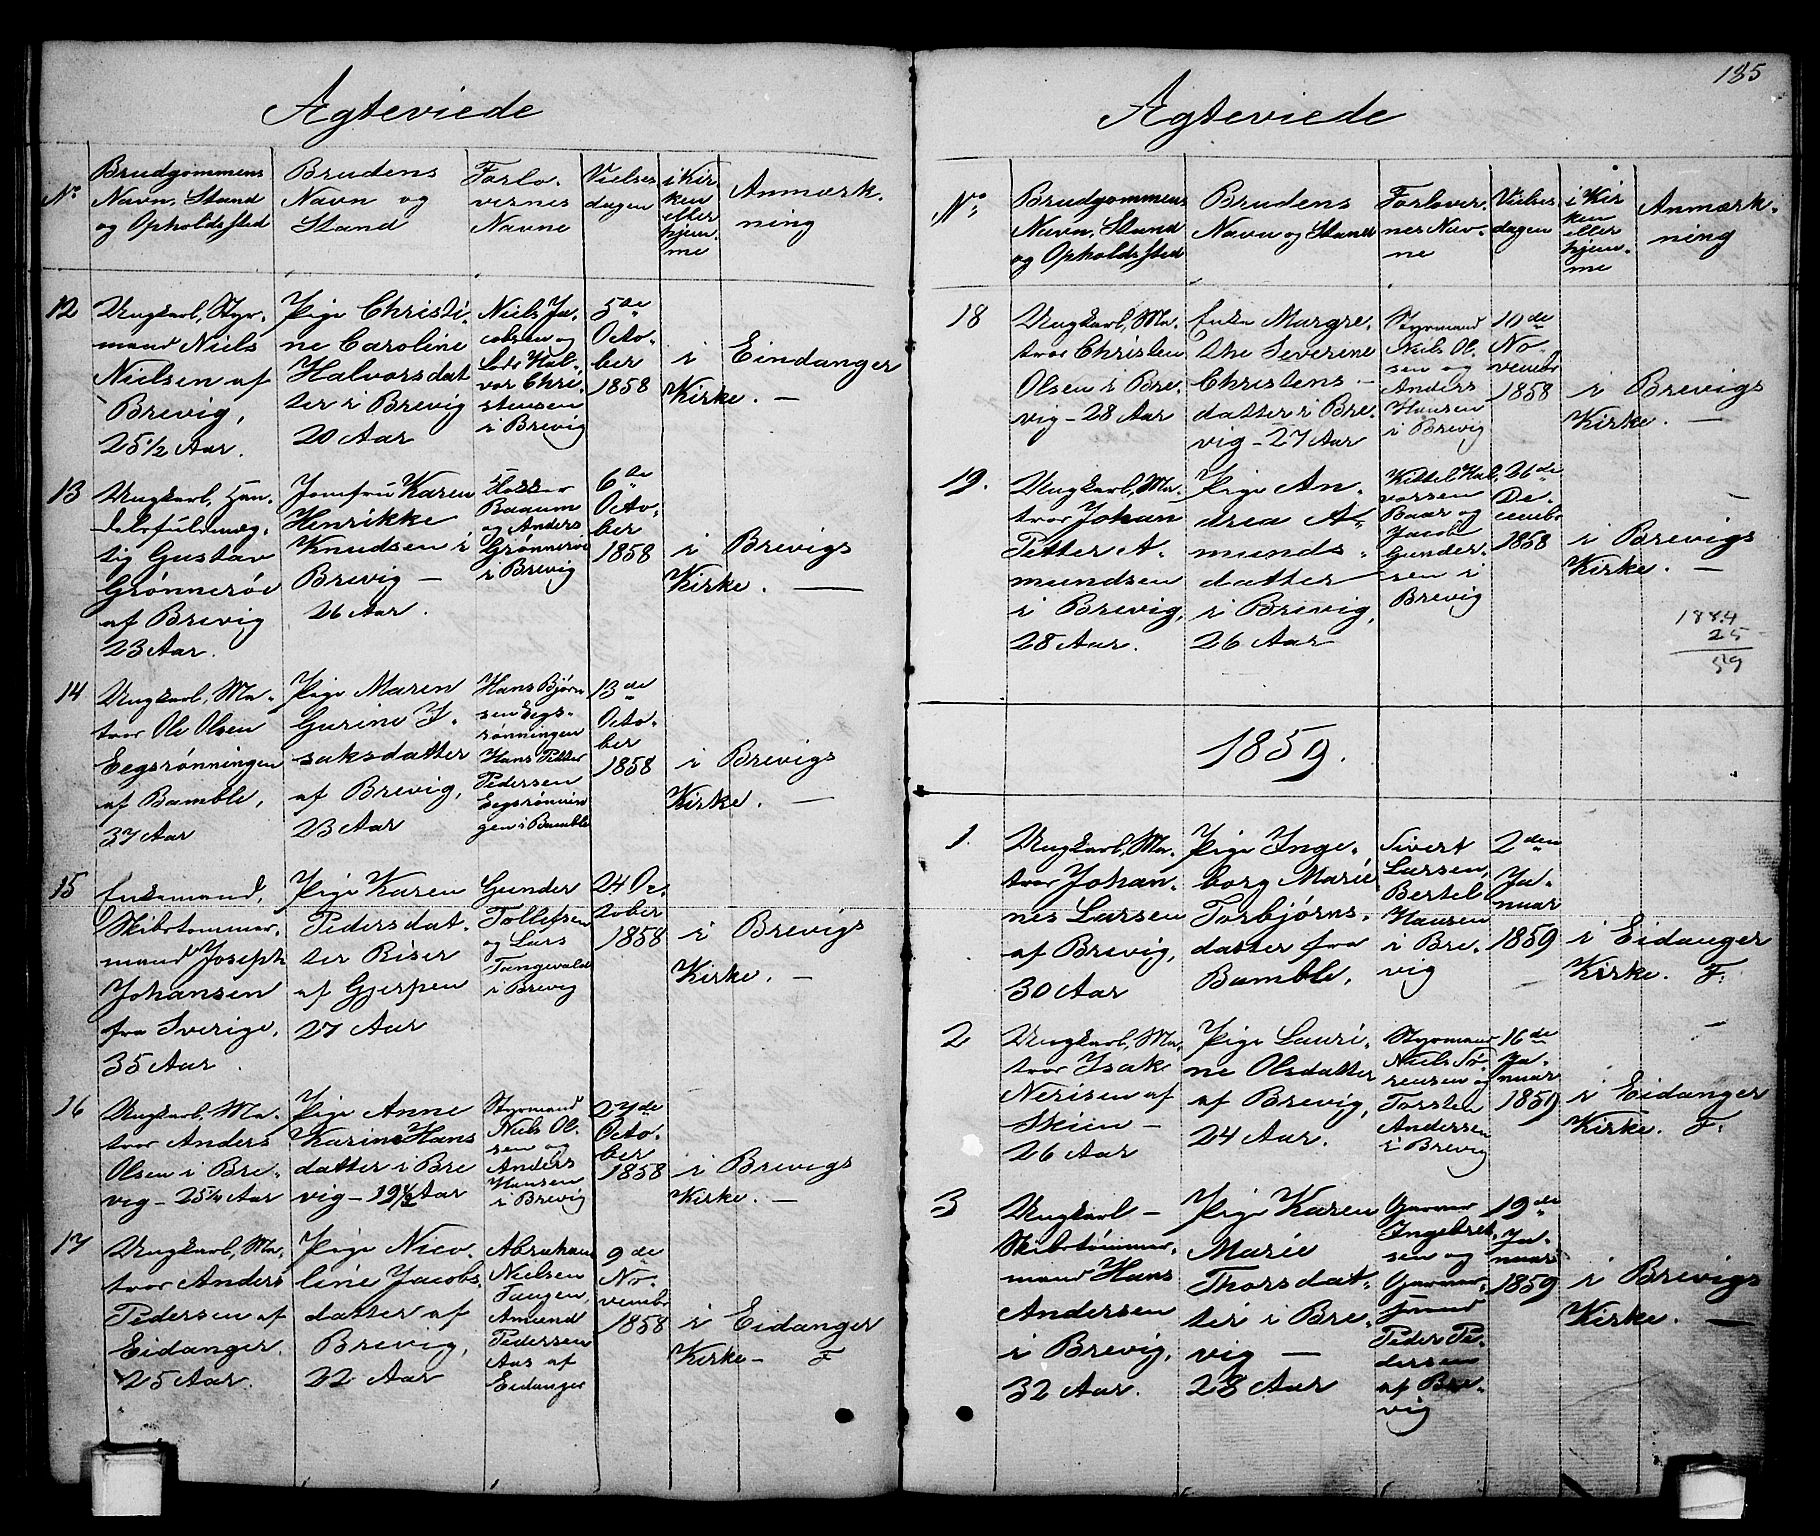 Ægteviede
No
Brudgommens
Navn, Stand
og Opholdssted
Brudens
Navn og
Stand
Forlo-
vernes
Navne
Vielses
dagen
i Kir-
ken
eller
hjem-
me
Anmærk-
ning
12
Ungkarl, Styr-
mand Niels
Nielsen af
Brevig,
25 1/2 Aar.
Pige Christi-
ne Caroline
Halvorsdat
ter i Brevig
20 Aar
Niels Ja-
cobsen og
Lods Hal-
vor Chri-
stensen
i Brevig
5te
Octo-
ber
1858
i Eindanger
Kirke. —
13
Ungkarl, Han-
delsfuldmæg-
tig Gustav
Grønnerøe
af Brevig
23 Aar.
Jomfru Karen
Henrikke
Knudsen i
Brevig —
26 Aar.
Baaum
og Anders
Grønnerøe
i Brevig
6te
Octo-
ber
1858
i Brevigs
Kirke. —
14
Ungkarl, Ma-
tros Ole Olsen
Eegsrønningen
af Bamble,
37 Aar
Pige Maren
Gurine I-
saksdatter
af Brevig,
23 Aar
Hans Bjørn
sen Eegs-
rønningen
Hans Petter
Pedersen
Eegsrønnin
gen i Bamble
13de
Octo-
ber
1858
i Brevigs
Kirke. —
15
Enkemand,
Skibstømmer-
mand Joseph
Johansen
fra Sverige,
35 Aar.
Pige Karen
Pedersdat-
ter Riser
af Gjerpen
27 Aar
Gunder
Tollefsen
og Lars
Tangevald
i Brevig
24 Oc-
tober
1858
i Brevigs
Kirke. —
16
Ungkarl, Ma-
tros Anders
Olsen i Bre-
vig — 25 1/4 Aar
Pige Anne
Karine Hans
datter i Bre
vig — 19 1/2 Aar
Styrmand
Niels Ol-
sen og
Anders
Hansen
i Brevig
27de
Octo-
ber
1858
i Brevigs
Kirke. —
17
Ungkarl, Ma-
tros Anders
Pedersen af
Eidanger.
25 Aar.
Pige Nico-
line Jacobs-
datter af
Brevig,
22 Aar.
Abraham
Nielsen
Tangen,
Amund
Pedersen
Aas af
Eidanger
9de
No-
vembr
1858
i Eidanger
Kirke — F
185
Ægteviede
No
Brudgommens
Navn, Stand
og Opholdssted
Brudens
Navn og Stand
Forlover-
nes Nav-
ne
Vielses-
dagen
i Kir
ken
eller
hjem-
me
Anmærk-
ning
18
Ungkarl, Ma-
tros Christen
Olsen i Bre-
vig — 28 Aar
Enke Margre-
the Severine
Christens-
datter i Bre-
vig — 27 Aar
Styrmand
Niels Ol-
sen og
Anders
Hansen
i Brevig
10de
No-
vembr
1858
i Brevigs
Kirke. —
19.
Ungkarl, Ma-
tros Johan
Petter A-
mundsen
i Brevig,
28 Aar.
Pige An-
drea A-
munds-
datter
i Brevig,
26 Aar
Kittel Hal
vorsen
Baar og
Jacob
Gunder-
sen i
Brevig
26de
De-
cembr
1858
i Brevigs
Kirke. —
1884
25
59
1859.
1.
Ungkarl, Ma-
tros Johan-
nes Larsen
af Brevig,
30 Aar
Pige Inge-
borg Marie
Torbjørns-
datter fra
Bamble.
Sivert
Larsen,
Bertel
Hansen
i Bre-
vig
2den
Ja-
nuar
1859
i Eidanger
Kirke. F.
2
Ungkarl, Ma-
tros Isak
Nerisen af
Skien —
26 Aar
Pige Lauri-
ne Olsdatter
af Brevig,
24 Aar.
Styrmand
Niels Sø-
rensen og
Torsten
Andersen
i Brevig
16de
Ja-
nuar
1859
i Eidanger
Kirke. F.
3
Ungkarl —
Skibstømmer-
mand Hans
Andersen
i Brevig,
32 Aar.
Pige Karen
Marie
Thorsdat-
ter i Bre-
vig —
28 Aar
Ingebret-
sen og
Peder Pe-
dersen
af Bre-
vig
19de
Ja-
nuar
1859
i Brevigs
Kirke. —